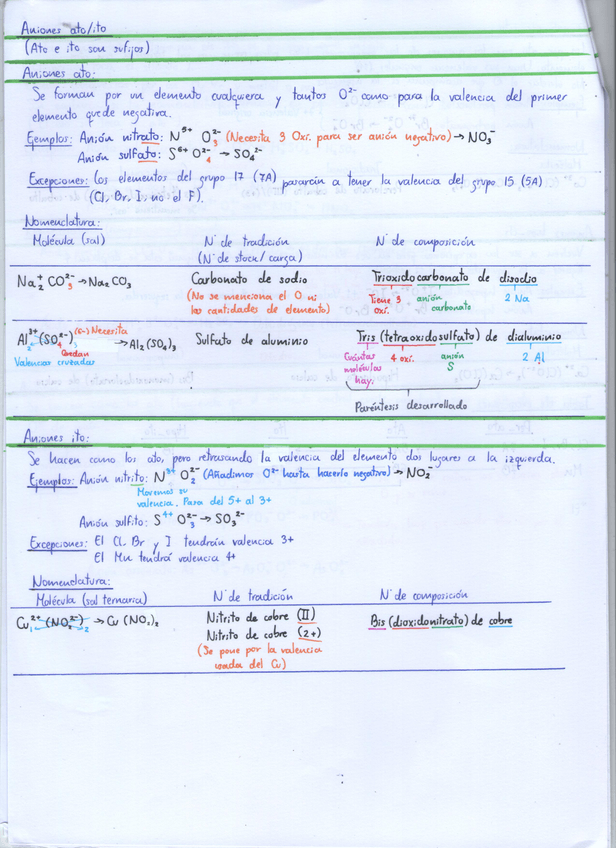 Aniones ato/ito
(Ato e ito son sufijos)
Aniones ato:
Se forman por un elemento cualquiera y tantos O²⁻ como para la valencia del primer
elemento quede negativa.
Ejemplos: Anión nitrato: N⁵⁺ O₃²⁻ (Necesita 3 Oxí. para ser anión negativo) → NO₃⁻
Anión sulfato: S⁶⁺ O₄²⁻ → SO₄²⁻
Excepciones: Los elementos del grupo 17 (7A) pasarán a tener la valencia del grupo 15 (5A)
(Cl, Br, I, no el F).
Nomenclatura:
Molécula (sal) N. de tradición N. de composición
(N. de stock/carga)
Na₂⁺ CO₃²⁻ → Na₂ CO₃ Carbonato de sodio Trioxidocarbonato de disodio
(No se menciona el O ni Tiene 3 anión 2 Na
las cantidades de elemento) oxí. carbonato
Al₂³⁺ (SO₄²⁻)₃ (6-) Necesita → Al₂(SO₄)₃ Sulfato de aluminio Tris (tetraoxidosulfato) de dialuminio
Quedan Cuántas 4 oxí. anión 2 Al
Valencias cruzadas moléculas S
hay.
Paréntesis desarrollado
Aniones ito:
Se hacen como los ato, pero retrasando la valencia del elemento dos lugares a la izquierda.
Ejemplos: Anión nitrito: N³⁺ O₂²⁻ (Añadimos O²⁻ hasta hacerlo negativo) → NO₂⁻
Movemos su
valencia. Pasa del 5+ al 3+
Anión sulfito: S⁴⁺ O₃²⁻ → SO₃²⁻
Excepciones: El Cl, Br y I tendrán valencia 3+
El Mn tendrá valencia 4+
Nomenclatura:
Molécula (sal ternaria) N. de tradición N. de composición
Cu₁²⁺ (NO₂²⁻)₂ → Cu (NO₂)₂ Nitrito de cobre (II) Bis (dioxidonitrato) de cobre
Nitrito de cobre (2+)
(Se pone por la valencia
usada del Cu)